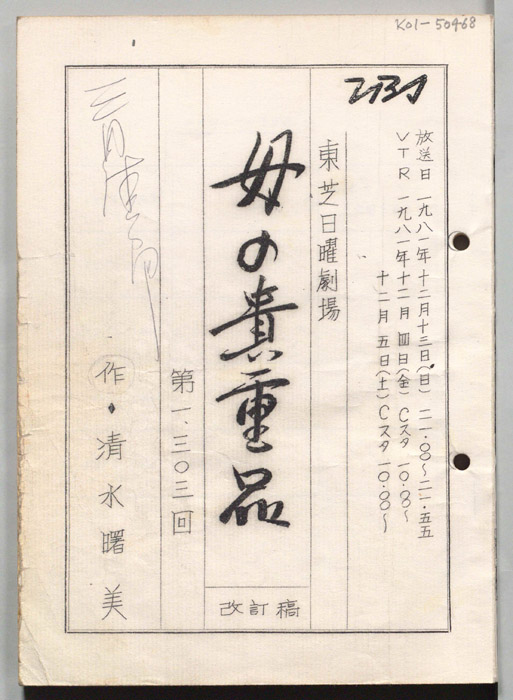 K01-50468
TBS
放送日 一九八一年十二月十三日(日) 二一・〇〇〜二一・五五
VTR 一九八一年十二月四日(金) Cスタ 一〇・〇〇〜
十二月五日(土) Cスタ 一〇・〇〇〜
東芝日曜劇場
母の貴重品
改訂稿
第一、三〇三回
作・清水曙美